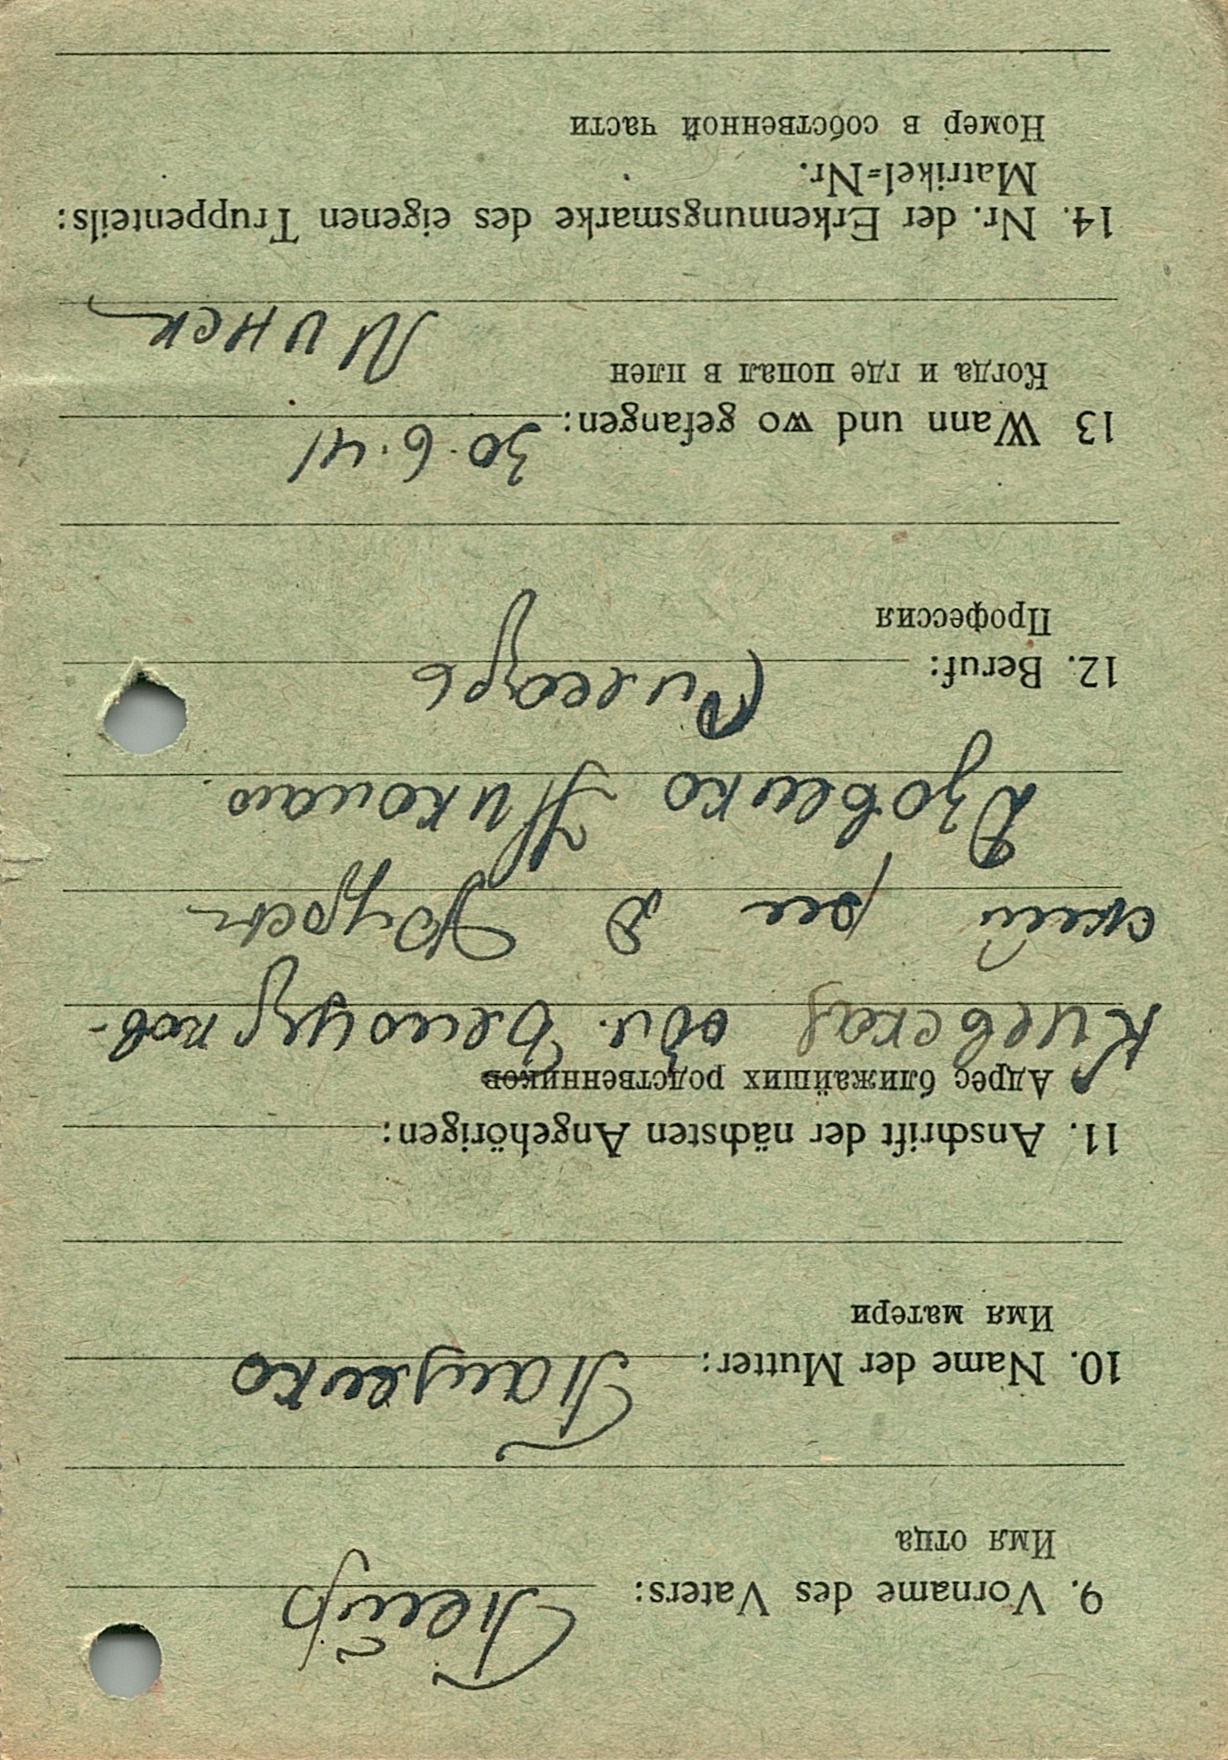 9. Vorname des Vaters:
Имя отца
Петр
10. Name der Mutter: Панченко
Имя матери
11. Anschrift der nächsten Angehörigen:
Адрес ближайших родственников
Киевская обл. Белоцерков-
ский рн
Николаю
12. Beruf: Слесарь
Профессия
13 Wann und wo gefangen: 30.6.41
Когда и где попал в плен
Минск
14. Nr. der Erkennungsmarke des eigenen Truppenteils:
Matrikel=Nr.
Номер в собственной части